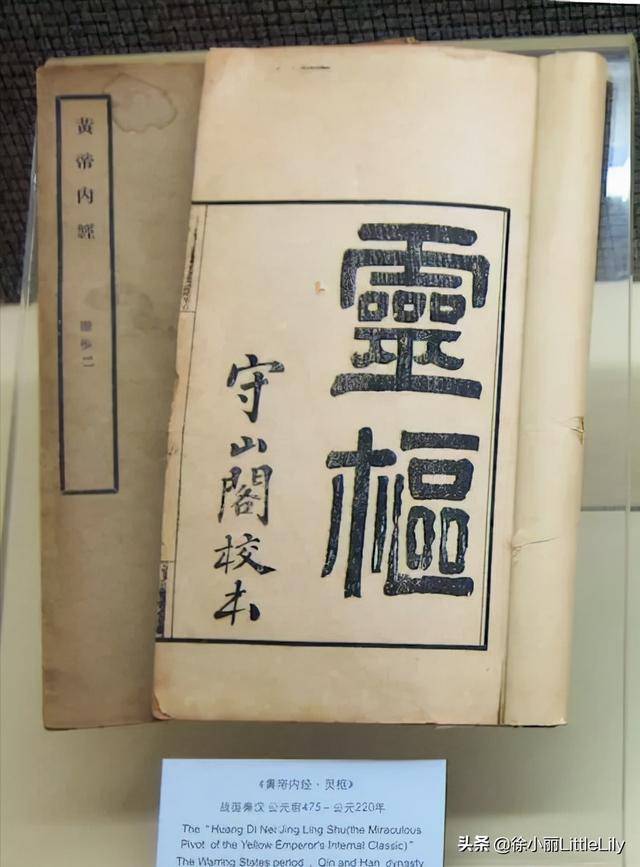 黃帝內經
靈樞
守山閣校本
《黄帝内经·灵枢》
战国秦汉 公元前475－公元220年
The "Huang Di Nei Jing Ling Shu(the Miraculous
Pivot of the Yellow Emperor's Internal Classic)"
The Warring States period , Qin and Han dynasty
头条 @徐小丽LittleLily